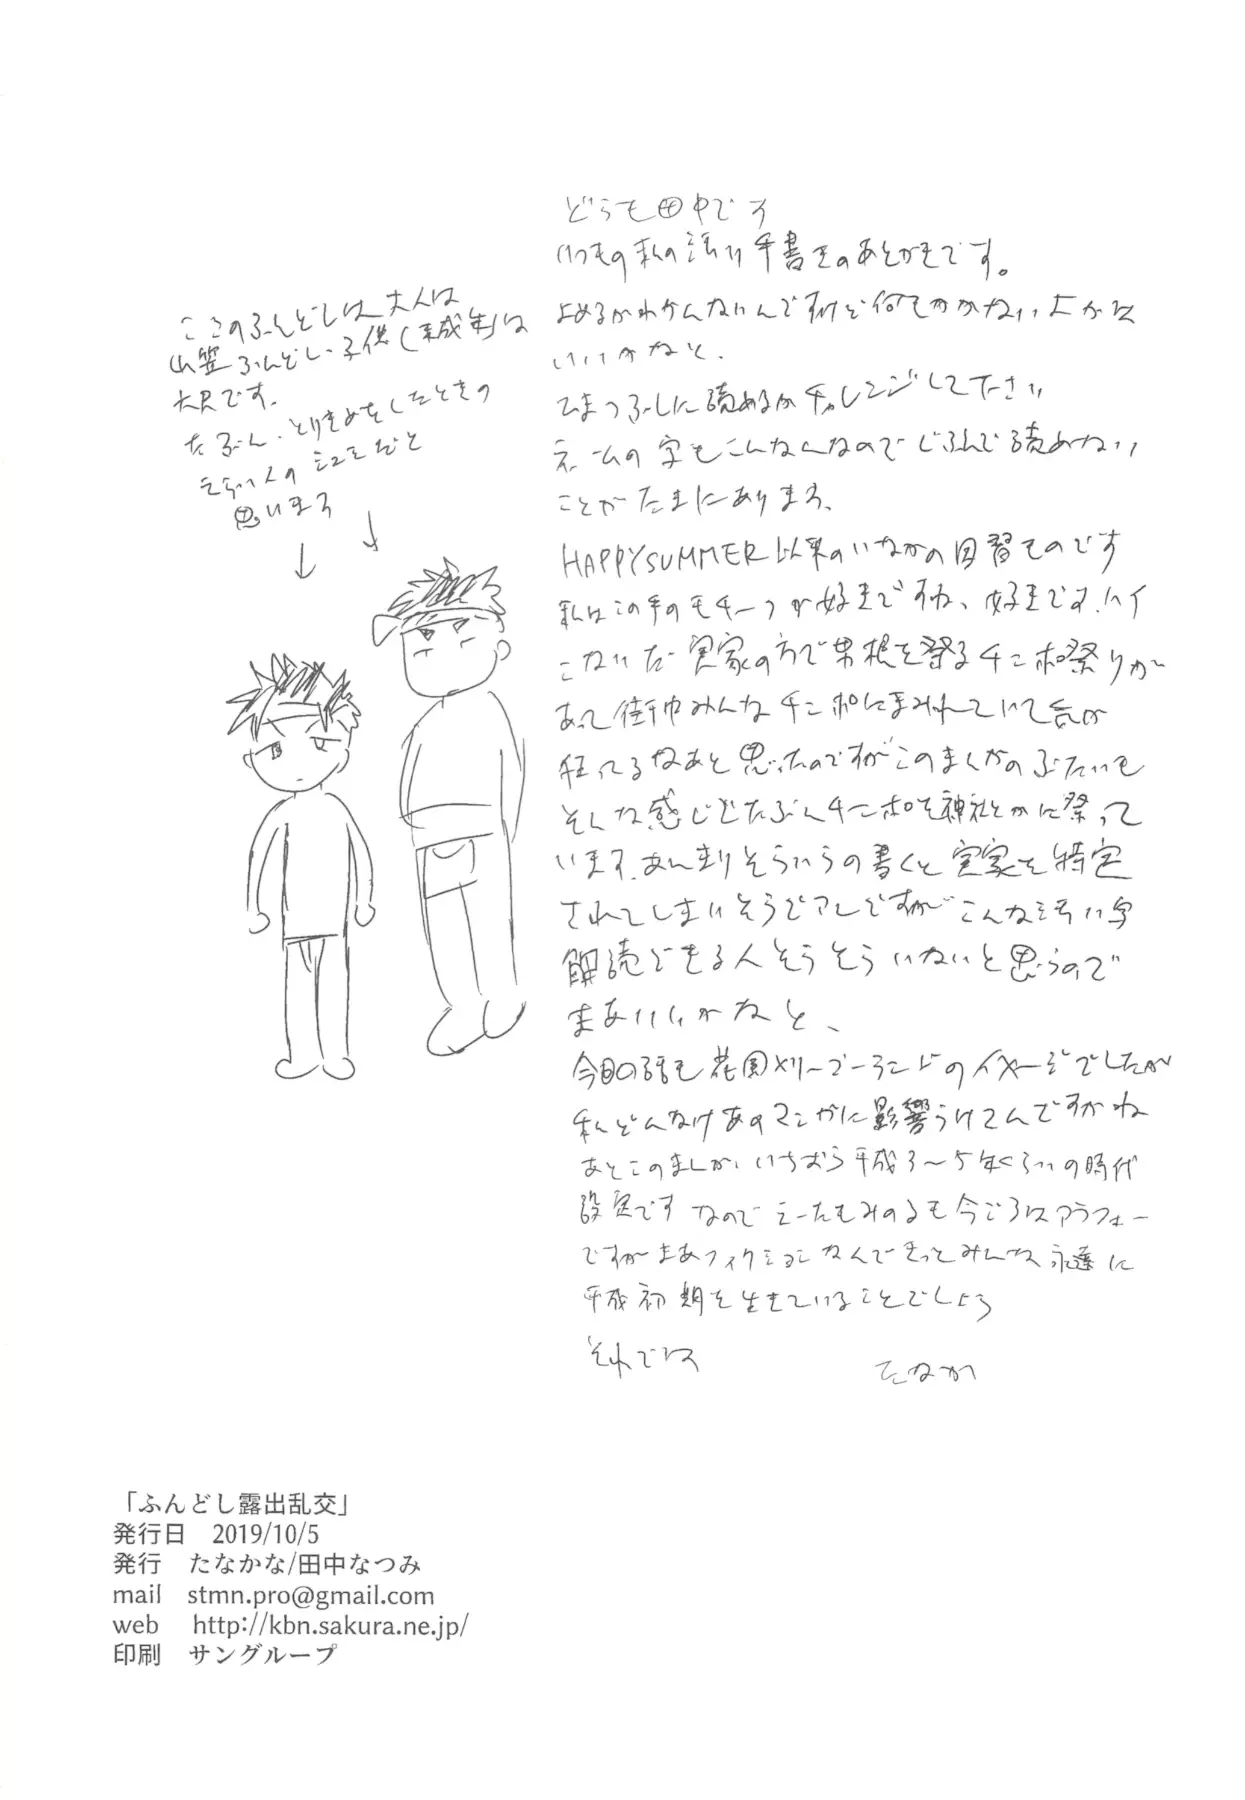 どうも田中です
いつもの私の汚い手書きのあとがきです。
よめるかわかんないんですけど何もかかないよかは
いいかなと、
ひまつぶしに読めるかチャレンジして下さい
ネームの字もこんなんなのでじぶんで読めない
ことがたまにあります、
HAPPYSUMMER以来のいなかの因習ものです
私はこの手のモチーフが好きですね、好きです、ハイ
こないだ実家の方で男根を祭るチンポ祭りが
あって街中みんなチンポにまみれていて
狂ってるなあと思ったのですがこのまんがのぶたいも
そんな感じでたぶんチンポを神社とかに祭って
います、あんまりそういうの書くと実家を特定
されてしまいそうでアレですがこんな汚い字
解読できる人そうそういないと思うので
まあいいかなと、
今回の話も花園メリーゴーランドのイメージでしたが
私どんだけあのマンガに影響うけてんですかね
あとこのまんが、いちおう平成3〜5年くらいの時代
設定です なので もみのるも今ごろはアラフォー
ですがまあフィクションなんできっとみんな永遠に
平成初期を生きていることでしょう
それでは
たなか
ここのふんどしは大人は
山笠ふんどし、子供(未成年)は
六尺です。
たぶん、とりきめをしたときの
えらい人の だと
思います
「ふんどし露出乱交」
発行日　2019/10/5
発行　たなかな/田中なつみ
mail　stmn.pro@gmail.com
web　http://kbn.sakura.ne.jp/
印刷　サングループ